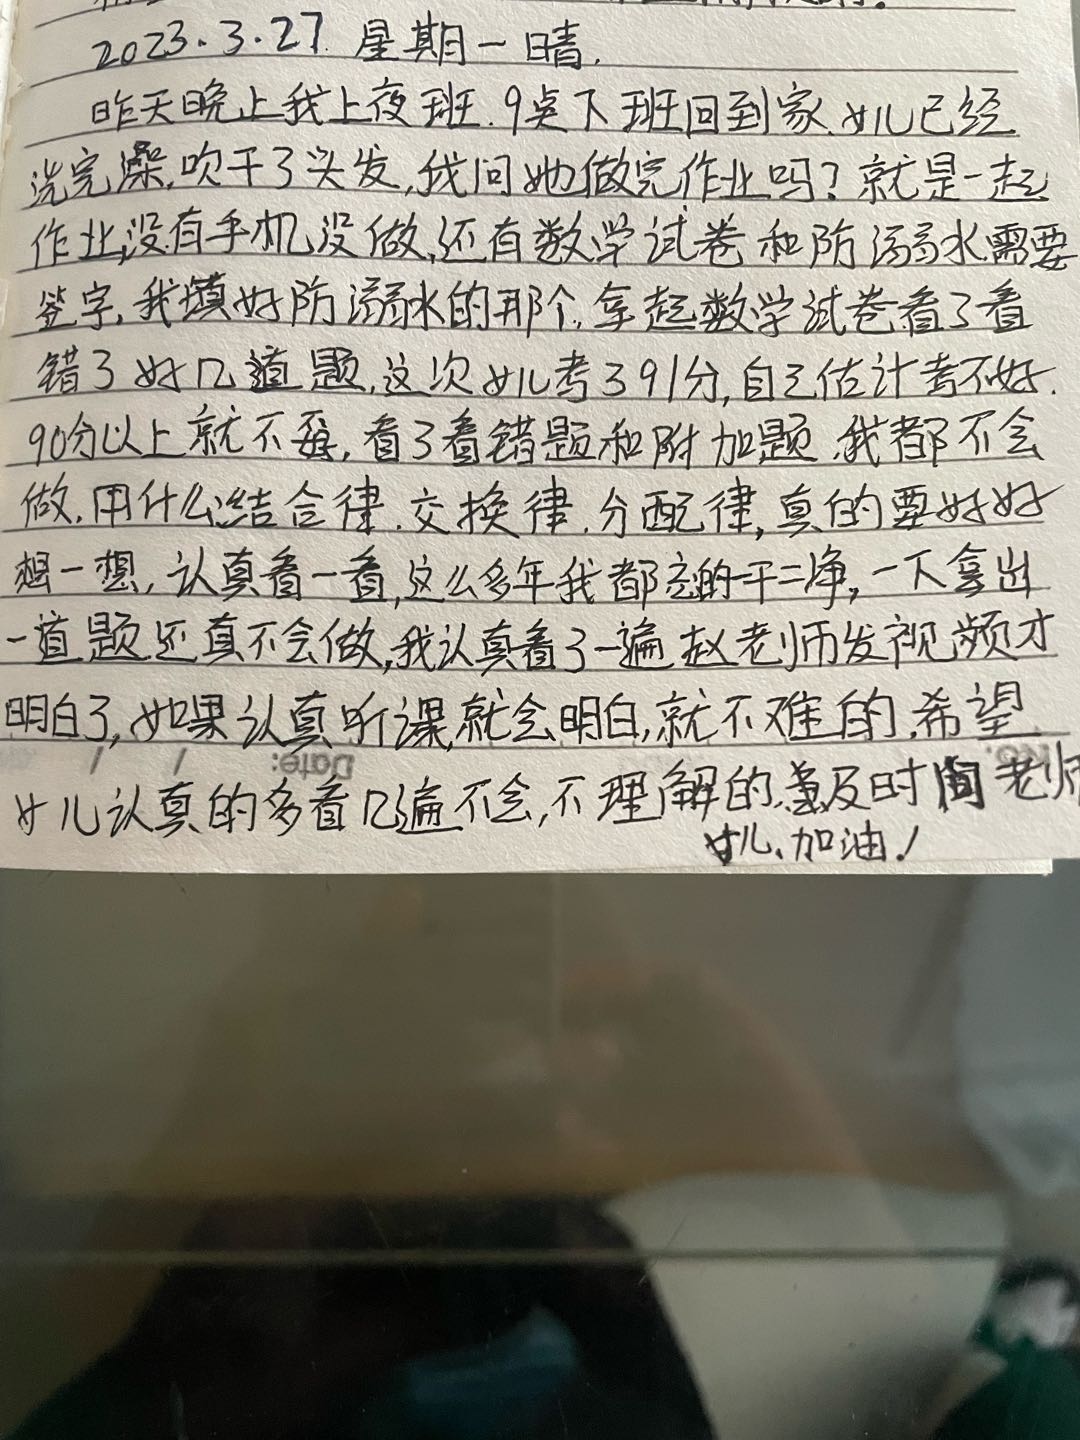 2023.3.27. 星期一晴.
昨天晚上我上夜班.9点下班回到家.女儿已经
洗完澡,吹干了头发,我问她做完作业吗?就是一起
作业,没有手机没做,还有数学试卷和防溺水需要
签字,我填好防溺水的那个,拿起数学试卷看了看
错了好几道题,这次女儿考了91分,自己估计考不好.
90分以上就不错,看了看错题和附加题.我都不会
做,用什么结合律.交换律.分配律,真的要好好
想一想,认真看一看,这么多年我都忘的一干二净,一下拿出
一道题还真不会做,我认真看了一遍赵老师发视频才
明白了,如果认真听课,就会明白,就不难的.希望
Date:
女儿认真的多看几遍不会,不理解的.要及时问老师
女儿、加油!